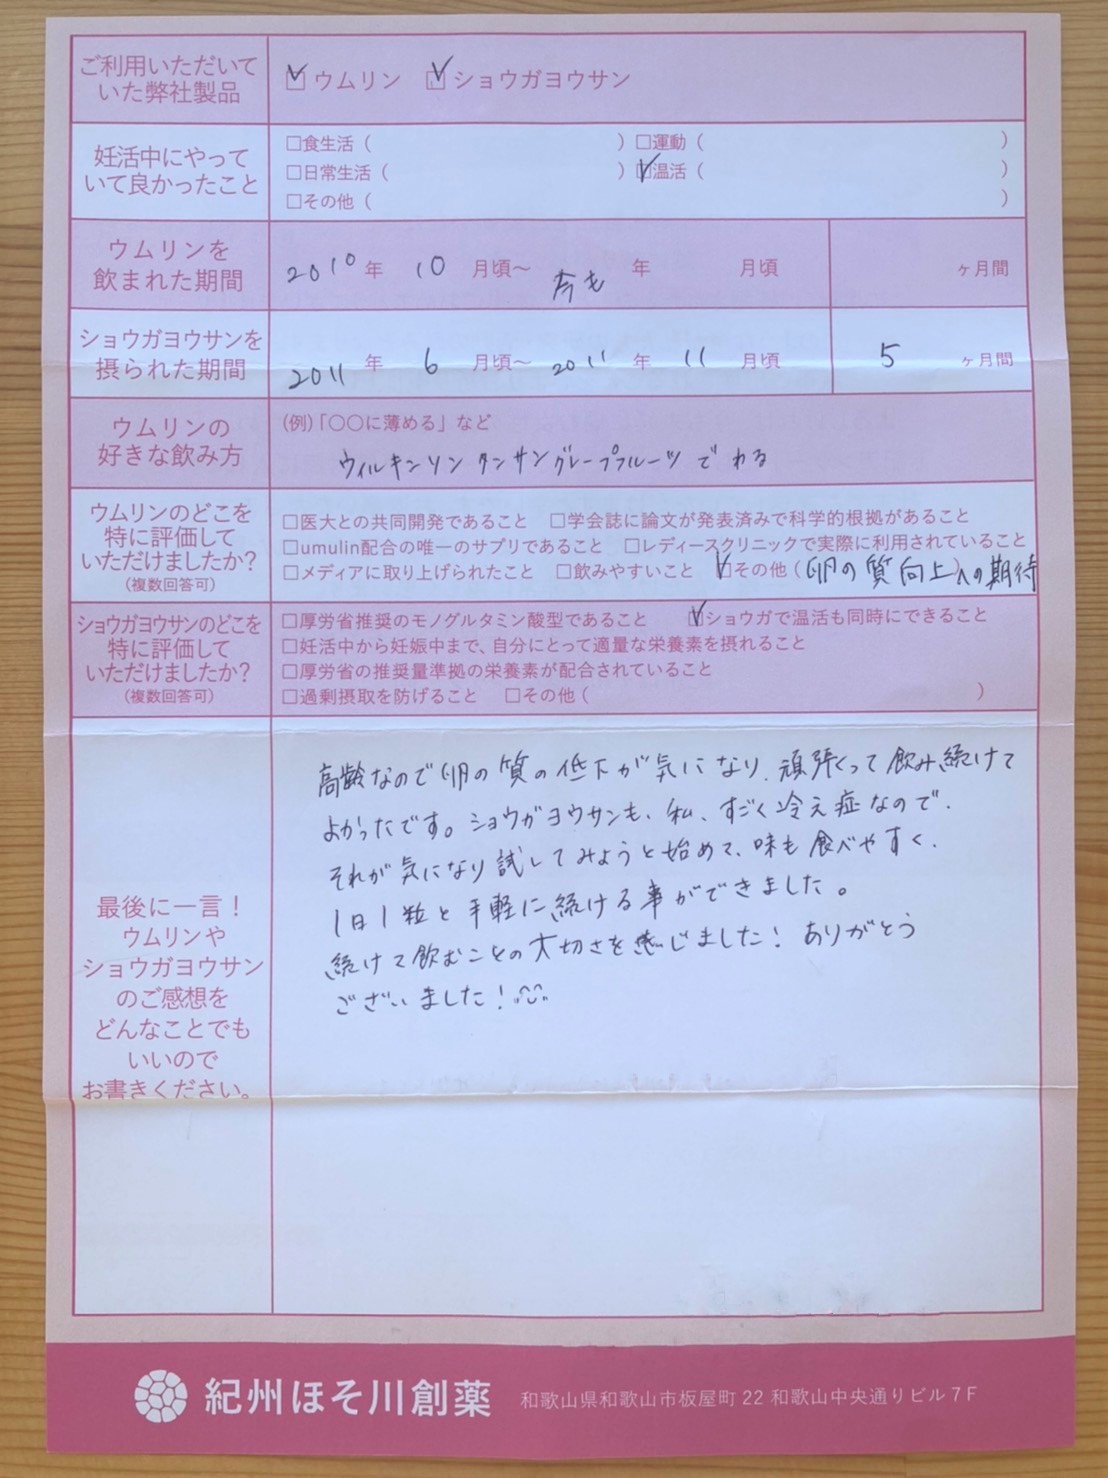 ご利用いただいて
いた弊社製品
☑ウムリン ☑ショウガヨウサン
妊活中にやって
いて良かったこと
□食生活( ) □運動( )
□日常生活( ) ☑温活( )
□その他( )
ウムリンを
飲まれた期間
2010年 10月頃〜 今も 年 月頃 ヶ月間
ショウガヨウサンを
摂られた期間
2011年 6月頃〜 2011年 11月頃 5ヶ月間
ウムリンの
好きな飲み方
(例)「○○に薄める」など
ウィルキンソンタンサングレープフルーツでわる
ウムリンのどこを
特に評価して
いただけましたか?
(複数回答可)
□医大との共同開発であること □学会誌に論文が発表済みで科学的根拠があること
□umulin配合の唯一のサプリであること □レディースクリニックで実際に利用されていること
□メディアに取り上げられたこと □飲みやすいこと ☑その他(卵の質向上への期待)
ショウガヨウサンのどこを
特に評価して
いただけましたか?
(複数回答可)
□厚労省推奨のモノグルタミン酸型であること ☑ショウガで温活も同時にできること
□妊活中から妊娠中まで、自分にとって適量な栄養素を摂れること
□厚労省の推奨量準拠の栄養素が配合されていること
□過剰摂取を防げること □その他( )
最後に一言!
ウムリンや
ショウガヨウサン
のご感想を
どんなことでも
いいので
お書きください。
高齢なので卵の質の低下が気になり、頑張くって飲み続けて
よかったです。ショウガヨウサンも、私、すごく冷え症なので、
それが気になり試してみようと始めて、味も食べやすく、
1日1粒と手軽に続ける事ができました。
続けて飲むことの大切さを感じました!ありがとう
ございました!
紀州ほそ川創薬 和歌山県和歌山市板屋町22 和歌山中央通りビル7F